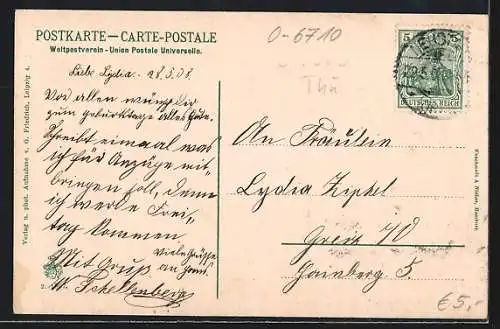 POSTKARTE — CARTE-POSTALE
Weltpostverein - Union Postale Universelle.
O-6710
Thü
5 5
DEUTSCHES REICH
Liebe Lydia. 28.5.08.
Vor allem wünsch Dir
zum geburtstage alles Gute.
Schreibt einmal was
ich für Anzüge mit-
bringen soll, denn
ich werde Frei-
tag kommen
Viele Grüsse
Mit Gruß an
W. Schellenberg
An Fräulein
Lydia Zipfel
Greiz
Hainberg 5.
Verlag u. phot. Aufnahme v. G. Friedrich, Leipzig
€5,-